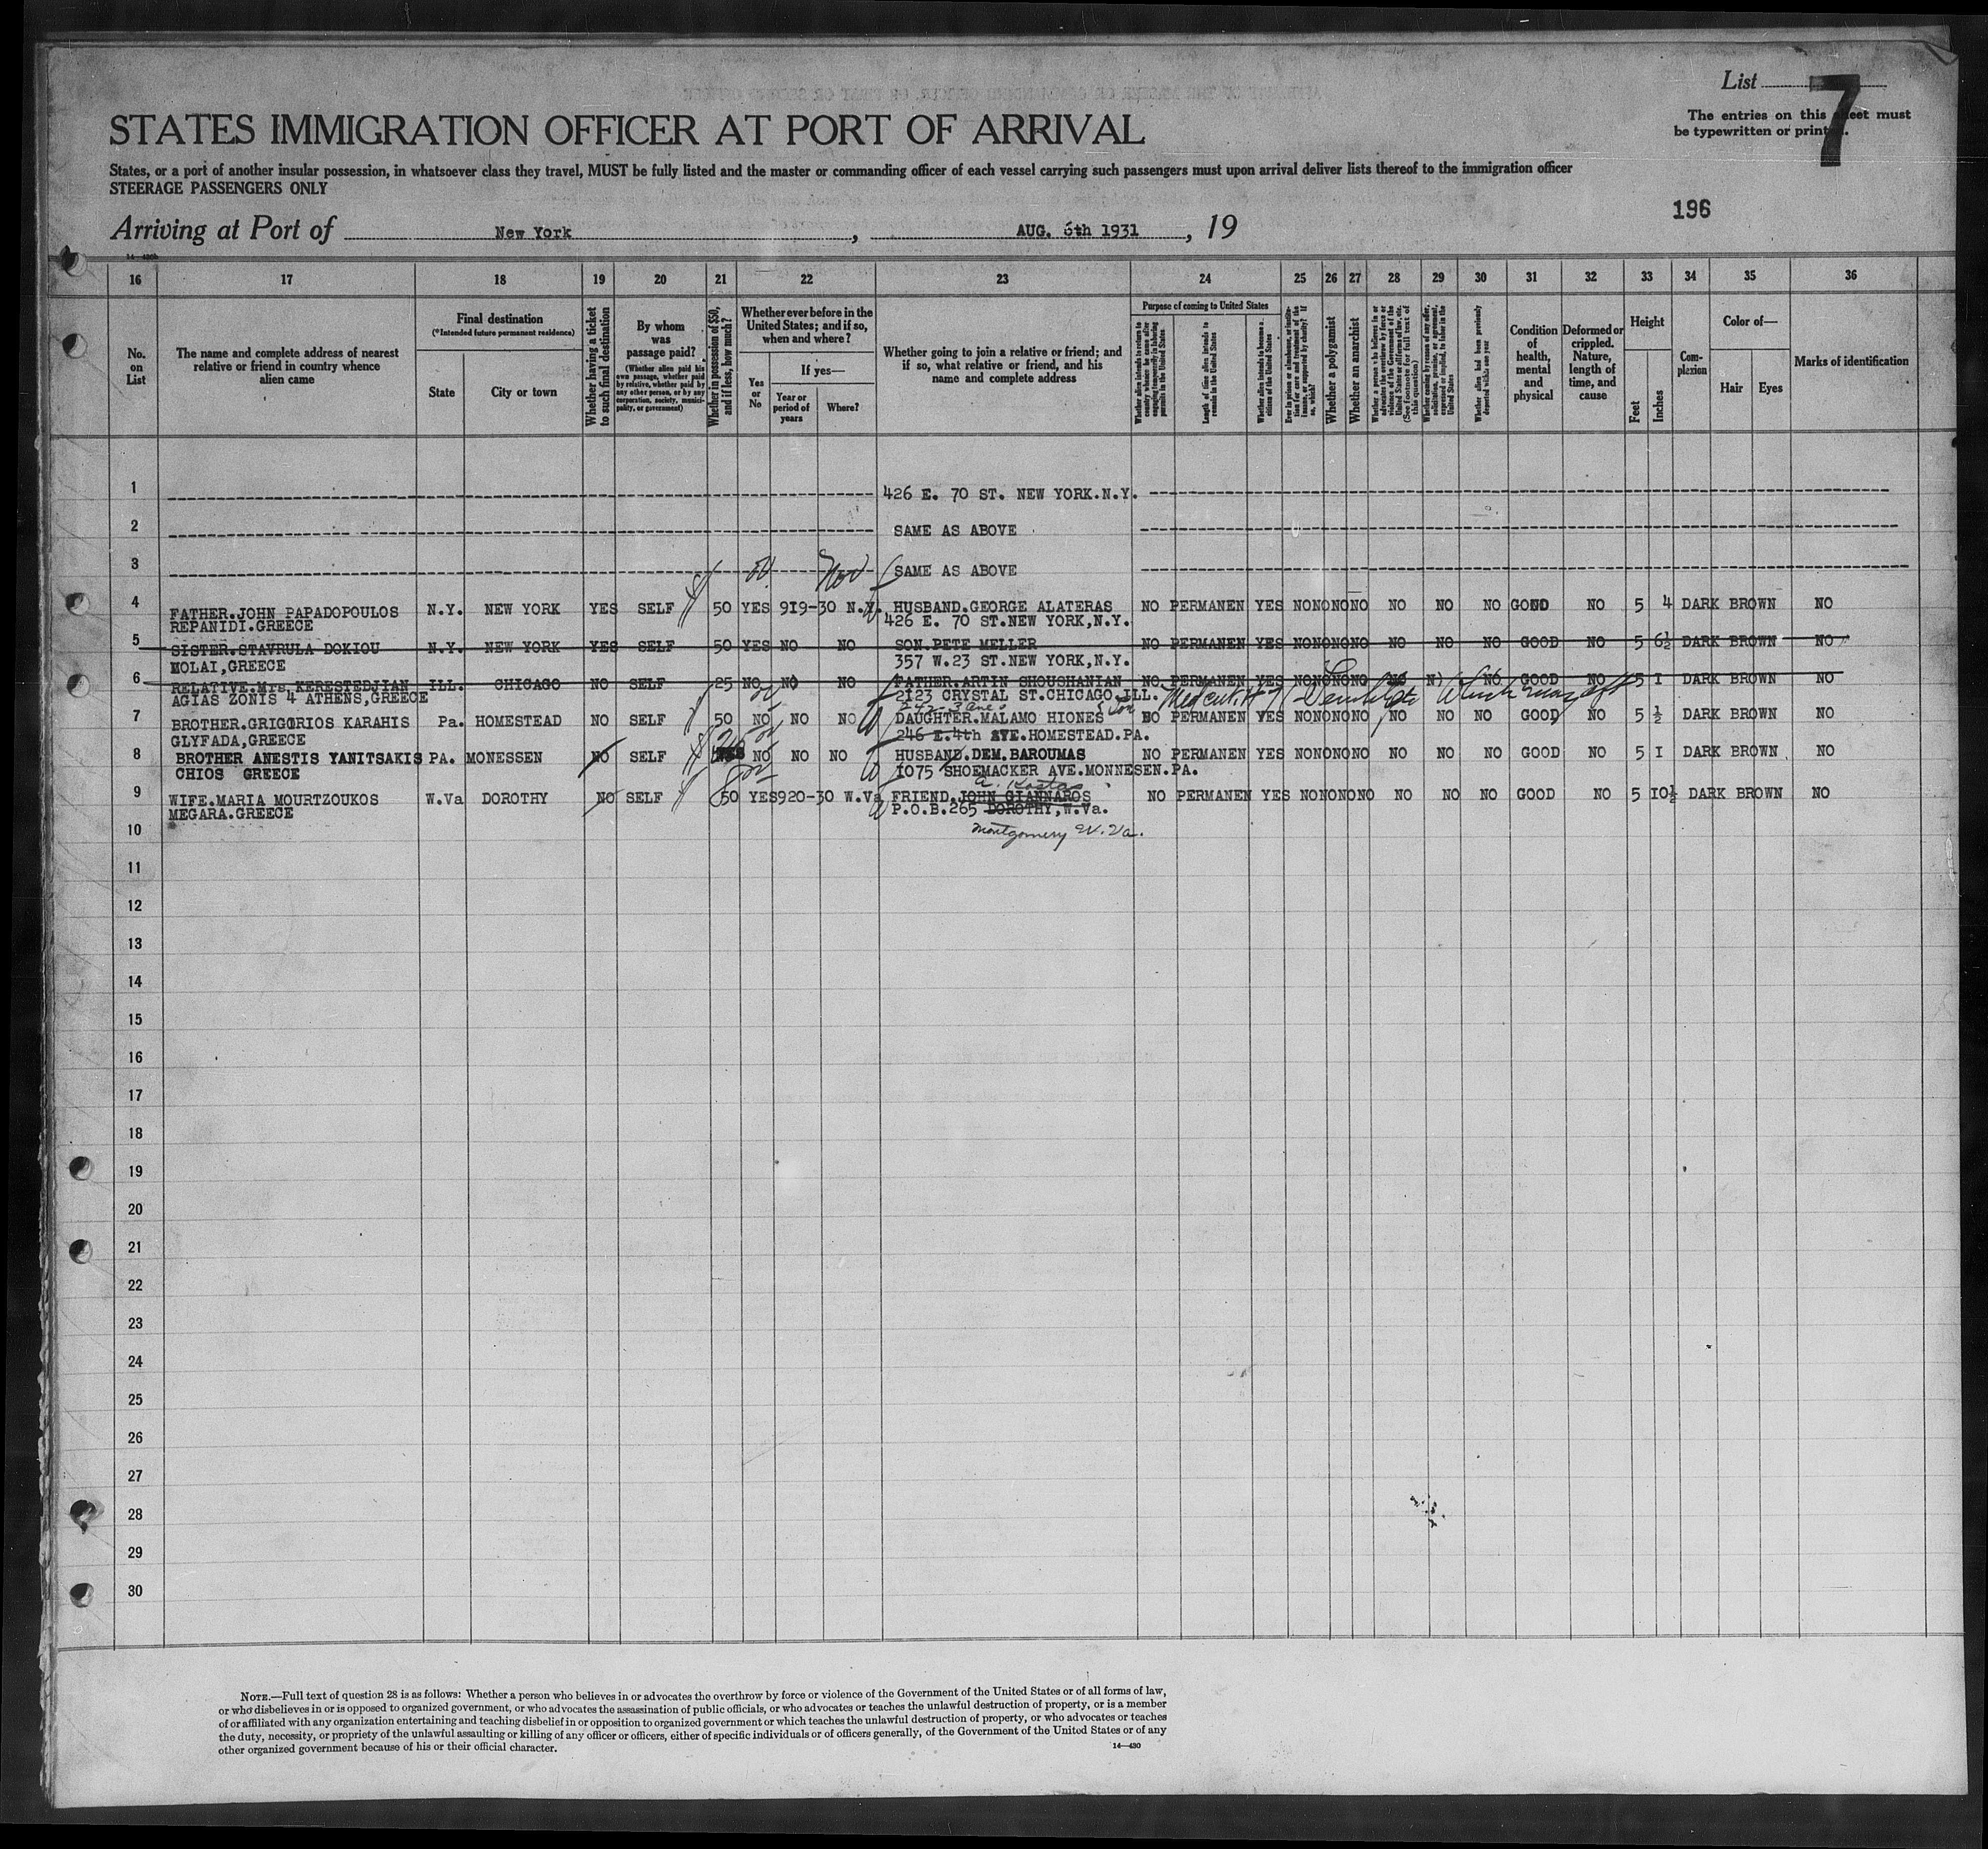 List 7
The entries on this sheet must
be typewritten or printed.
STATES IMMIGRATION OFFICER AT PORT OF ARRIVAL
States, or a port of another insular possession, in whatsoever class they travel, MUST be fully listed and the master or commanding officer of each vessel carrying such passengers must upon arrival deliver lists thereof to the immigration officer
STEERAGE PASSENGERS ONLY
196
Arriving at Port of New York, AUG. 6th 1931, 19
14-430b
16 17 18 19 20 21 22 23 24 25 26 27 28 29 30 31 32 33 34 35 36
No. on List
The name and complete address of nearest relative or friend in country whence alien came
Final destination
(*Intended future permanent residence)
State
City or town
Whether having a ticket to such final destination
By whom was passage paid?
(Whether alien paid his own passage, whether paid by relative, whether paid by any other person, or by any corporation, society, municipality, or government)
Whether in possession of $50, and if less, how much?
Whether ever before in the United States; and if so, when and where?
Yes or No
If yes—
Year or period of years
Where?
Whether going to join a relative or friend; and if so, what relative or friend, and his name and complete address
Purpose of coming to United States
Whether alien intends to return to country whence he came after engaging temporarily in laboring pursuits in the United States
Length of time alien intends to remain in the United States
Whether alien intends to become a citizen of the United States
Ever in prison or almshouse, or institution for care and treatment of the insane, or supported by charity? If so, which?
Whether a polygamist
Whether an anarchist
Whether a person who believes in or advocates the overthrow by force or violence of the Government of the United States or all forms of law, etc. (See footnote for full text of this question)
Whether coming by reason of any offer, solicitation, promise, or agreement, expressed or implied, to labor in the United States
Whether alien had been previously deported within one year
Condition of health, mental and physical
Deformed or crippled. Nature, length of time, and cause
Height
Feet
Inches
Complexion
Color of—
Hair
Eyes
Marks of identification
1 426 E. 70 ST. NEW YORK.N.Y.
2 SAME AS ABOVE
3 SAME AS ABOVE
4 FATHER.JOHN PAPADOPOULOS N.Y. NEW YORK YES SELF 50 YES 919-30 N.Y. HUSBAND.GEORGE ALATERAS NO PERMANEN YES NO NO NO NO NO NO NO GOOD NO 5 4 DARK BROWN NO
REPANIDI.GREECE 426 E. 70 ST.NEW YORK,N.Y.
5 SISTER.STAVRULA DOKIOU N.Y. NEW YORK YES SELF 50 YES NO NO SON.PETE MELLER NO PERMANEN YES NO NO NO NO NO NO NO GOOD NO 5 6½ DARK BROWN NO
MOLAI,GREECE 357 W.23 ST.NEW YORK,N.Y.
6 RELATIVE.Mrs KERESTEDJIAN ILL. CHICAGO NO SELF 25 NO NO NO FATHER.ARTIN CHOUSHANIAN NO PERMANEN YES NO NO NO NO NO N) NO GOOD NO 5 I DARK BROWN NO
AGIAS ZONIS 4 ATHENS,GREECE 2123 CRYSTAL ST.CHICAGO.ILL.
242-3 Ave
7 BROTHER.GRIGORIOS KARAHIS Pa. HOMESTEAD NO SELF 50 NO NO NO DAUGHTER.MALAMO HIONES NO PERMANEN YES NO NO NO NO NO NO NO GOOD NO 5 ½ DARK BROWN NO
GLYFADA,GREECE 246 E.4th AVE.HOMESTEAD.PA.
8 BROTHER ANESTIS YANITSAKIS PA. MONESSEN NO SELF NO NO NO HUSBAND.DEM.BAROUMAS NO PERMANEN YES NO NO NO NO NO NO NO GOOD NO 5 I DARK BROWN NO
CHIOS GREECE 1075 SHOEMACKER AVE.MONNESEN.PA.
9 WIFE.MARIA MOURTZOUKOS W.Va DOROTHY NO SELF 50 YES 920-30 W.Va FRIEND.JOHN GIANNAROS NO PERMANEN YES NO NO NO NO NO NO NO GOOD NO 5 10½ DARK BROWN NO
MEGARA.GREECE P.O.B.265 DOROTHY,W.Va.
10 Montgomery W. Va.
11
12
13
14
15
16
17
18
19
20
21
22
23
24
25
26
27
28
29
30
NOTE.—Full text of question 28 is as follows: Whether a person who believes in or advocates the overthrow by force or violence of the Government of the United States or of all forms of law,
or who disbelieves in or is opposed to organized government, or who advocates the assassination of public officials, or who advocates or teaches the unlawful destruction of property, or is a member
of or affiliated with any organization entertaining and teaching disbelief in or opposition to organized government or which teaches the unlawful destruction of property, or who advocates or teaches
the duty, necessity, or propriety of the unlawful assaulting or killing of any officer or officers, either of specific individuals or of officers generally, of the Government of the United States or of any
other organized government because of his or their official character.
14—430